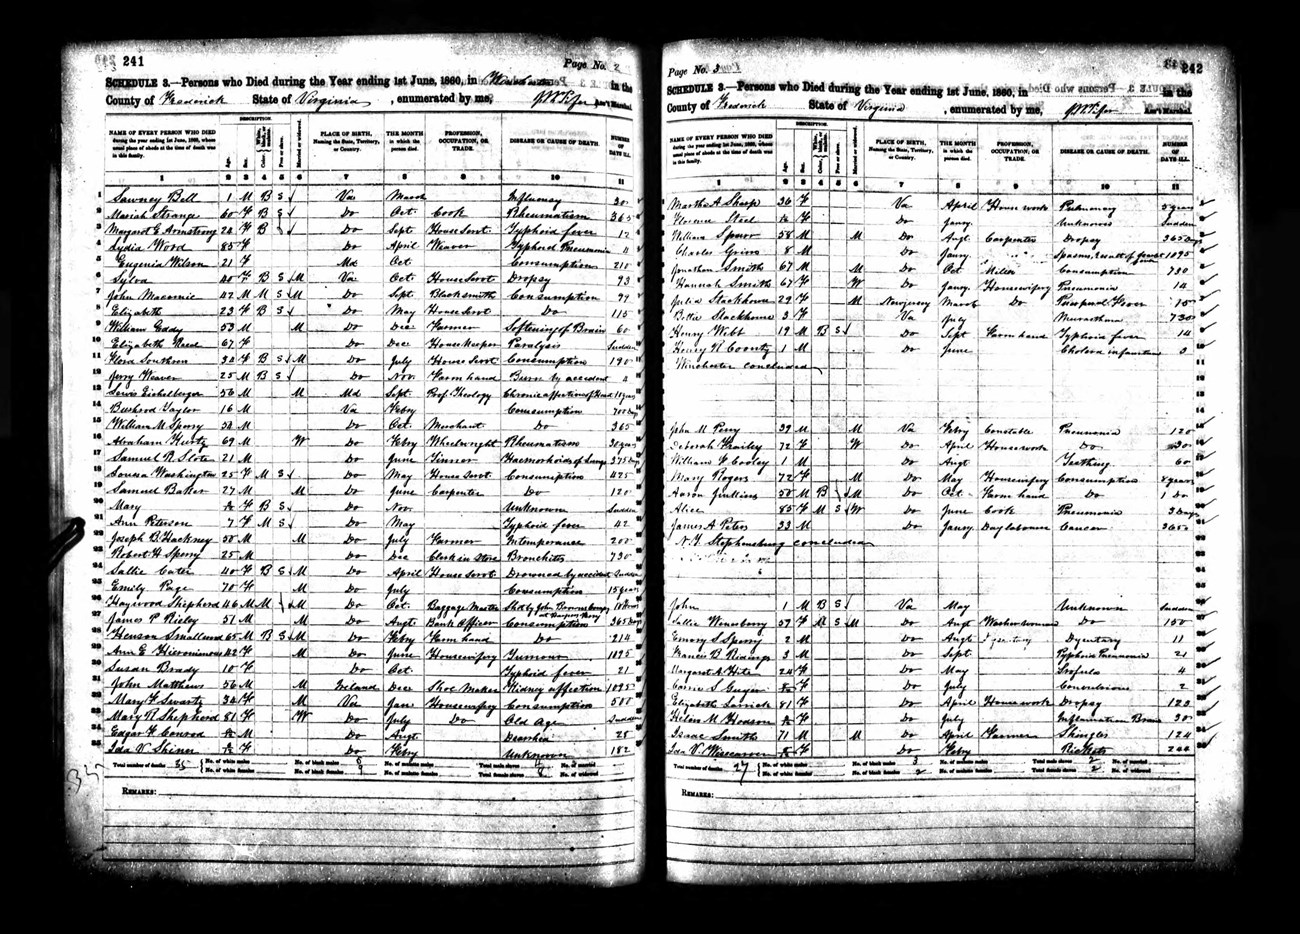 241
Page No. 2
SCHEDULE 3.—Persons who Died during the Year ending 1st June, 1860, in Winchester in the
County of Frederick State of Virginia, enumerated by me, Ass't Marshal.
DESCRIPTION.
NAME OF EVERY PERSON WHO DIED during the year ending 1st June, 1860, whose usual place of abode at the time of death was in this family. Age. Sex. Married or widowed. PLACE OF BIRTH, Naming the State, Territory, or Country. THE MONTH in which the person died. PROFESSION, OCCUPATION, OR TRADE. DISEASE OR CAUSE OF DEATH. NUMBER OF DAYS ILL.
1 2 3 4 5 6 7 8 9 10 11
1 Sawney Bell 1 M B S Va March Influenzy 30
2 Mariah Strange 60 F B S Do Oct Cook Rheumatism 365
3 Margaret E Armstrong 24 F B Do Sept House Servt Typhoid fever 12
4 Lydia Word 85 F Do April Weaver Typhoid Pneumonia 11
5 Eugenia Wilson 21 F Md Oct Consumption 210
6 Sylva 40 F B S M Va Oct House Servt Dropsy 93
7 John 42 M M S M Do Sept Blacksmith Consumption 99
8 Elizabeth 23 F B S Do May House Servt Do 115
9 William Eddy 53 M M Do Dec Farmer Softening of Brain 60
10 Elizabeth Reed 67 F Do Dec House Keeper Paralysis Sudden
11 Flora Southern 34 F B S M Do July House Servt Consumption 190
12 Jerry Weaver 25 M B S Do Nov Farm hand Burn by accident 4
13 Lewis Eichelberger 56 M M Md Sept Prof. Theology Chronic affection of Head
14 Bushrod Taylor 16 M Va Feby Consumption 700 Days
15 William M Sperry 34 M Do Oct Merchant Do 365
16 Abraham Kurtz 69 M W Do Feby Wheelwright Rheumatism
17 Samuel R. Slote 21 M Do June Tinner Haemorhoids of Lungs 375 Days
18 Louisa Washington 25 F M S Do May House Servt Consumption 425
19 Samuel Baker 27 M M Do June Carpenter Do 120
20 Mary F B S Do Nov Unknown Sudden
21 Ann Peterson 7 F M S Do May Typhoid fever 42
22 Joseph B. Hackney 50 M M Do July Farmer Intemperance 200
23 Robert H Sperry 25 M Do Dec Clerk in Store Bronchites 730
24 Sallie Carter 40 F B S M Do April House Servt Drowned by accident Sudden
25 Emily Page 70 F M Do July Consumption 15 years
26 Haywood Shepherd 46 M M M Do Oct Baggage Master Shot by John Browns Comp at Harpers Ferry
27 James P Rieley 51 M M Do Augt Bank Officer Consumption 365 Days
28 Henson Smallwood 65 M B S M Do Feby Farm hand Do 214
29 Ann E Hieronimous 42 F M Do June Housewifery Tumour 1095
30 Susan Brady 10 F Do Oct Typhoid fever 21
31 John Matthews 56 M M Ireland Dec Shoe Maker Kidney affection 1095
32 Mary F Swartz 34 F M Va Jan Housewifery Consumption 500
33 Mary R Shepherd 81 F W Do July Do Old Age Sudden
34 Edgar F Conrad M Do Augt Diarrhea 28
35 Ida V Shiner F Do Feby Unknown 182
Total number of deaths 35 No. of white males No. of black males 6 No. of mulatto males Total male slaves No. of married
No. of white females No. of black females 9 No. of mulatto females Total female slaves 8 No. of widowed
REMARKS:
242
Page No. 3
SCHEDULE 3.—Persons who Died during the Year ending 1st June, 1860, in in the
County of Frederick State of Virginia, enumerated by me, Ass't Marshal.
DESCRIPTION.
NAME OF EVERY PERSON WHO DIED during the year ending 1st June, 1860, whose usual place of abode at the time of death was in this family. Age. Sex. Married or widowed. PLACE OF BIRTH, Naming the State, Territory, or Country. THE MONTH in which the person died. PROFESSION, OCCUPATION, OR TRADE. DISEASE OR CAUSE OF DEATH. NUMBER OF DAYS ILL.
1 2 3 4 5 6 7 8 9 10 11
Martha A Sharp 36 F Va April House work Pulmonary 5 years
Florence Steel F Do Jany Unknown Sudden
William Spurr 58 M M Do Augt Carpenter Dropsy 365 Days
Charles Grim 8 M Do Jany 1095
Jonathan Smith 67 M M Do Oct Miller Consumption 730
Hannah Smith 67 F W Do Jany Housewifery Pneumonia 14
Julia Stackhouse 29 F M New Jersey March Do Puerperal Fever 15
Bettie Stackhouse 3 F Va July Marasthma 730
Henry Webb 19 M B S Do Sept Farm hand Typhoid fever 14
Henry R Coontz 1 M Do June Cholera infantum 3
Winchester concluded
John M Perry 39 M M Va Feby Constable Pneumonia 120
Deborah Frailey 72 F W Do April House work Do 30
William F Cooley 1 M Do Augt Teething 60
Mary Rogers 72 F M Do May Housewifery Consumption 8 years
Aaron Jenkins 50 M B M Do Oct Farm hand Do 1 Do
Alice 85 F M S W Do June Cook Pneumonia 3 Days
James A Peters 33 M Do Jany Day labourer Cancer 365
N. T. Stephensburg concluded
John 1 M B S Va May Unknown Sudden
Sallie 59 F M S M Do Augt Washerwoman Do 150
Emory S Sperry 2 M Do Augt Dysentary 11
Frances B Ridings 3 M Do Sept Typhoid Pneumonia 21
Margaret A Hite 24 F Do May Scrofula 4
F Do July Convulsions 2
Elizabeth 81 F Do April House work Dropsy 123
Helen M Hodson F Do July Inflamation Brain 30
Isaac Smith 71 M M Do April Farmer Shingles 124
Ida V. Wisecarver F Do Feby Rickets 244
Total number of deaths 27 No. of white males No. of black males 3 No. of mulatto males Total male slaves 2 No. of married
No. of white females No. of black females 2 No. of mulatto females Total female slaves 2 No. of widowed
REMARKS: